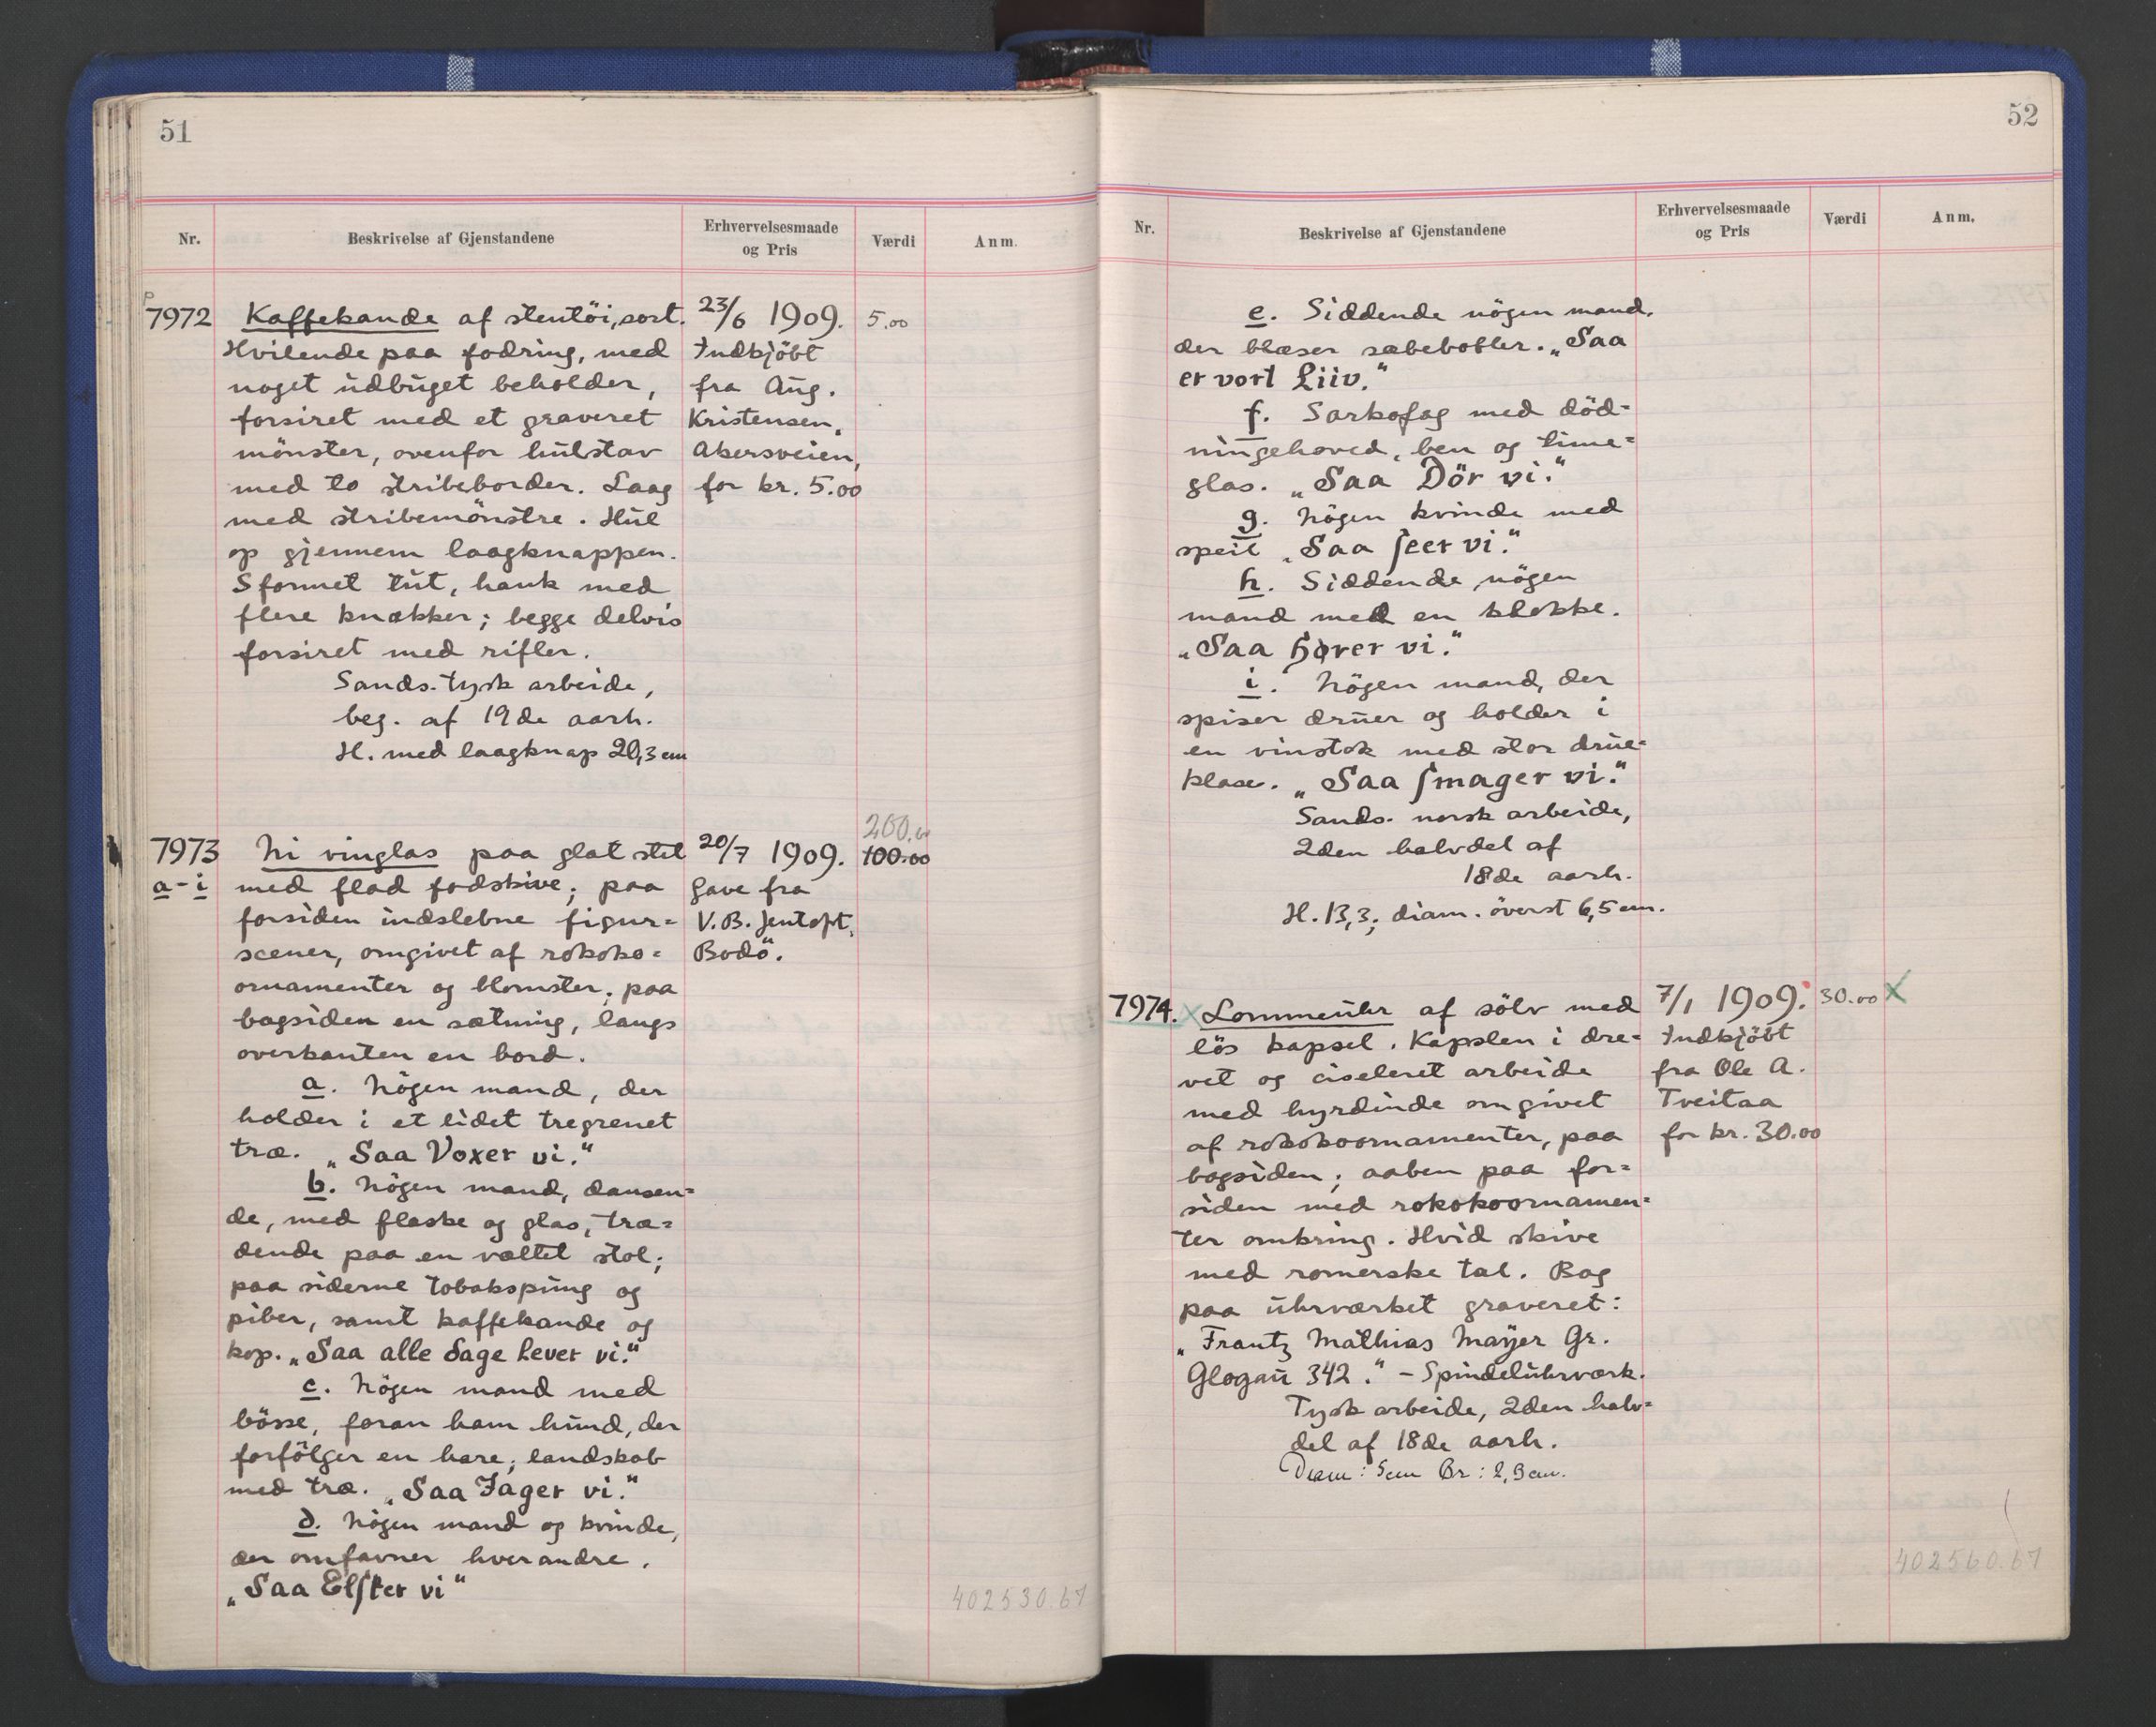 51
Nr.
Beskrivelse af Gjenstandene
Erhvervelsesmaade
og Pris
Værdi
Anm.
7972
Kaffekande af stentöi, sort.
Hvilende paa fodring, med
noget udbuget beholder,
forsiret med et graveret
mönster, ovenfor hulstav
med to stribeborder. Laag
med stribemönstre. Hul
op gjennem laagknappen.
S formet tut, hank med
flere knækker; begge delvis
forsiret med rifler.
Sands. tysk arbeide,
beg. af 19de aarh.
H. med laagknap 20,3 cm
23/6 1909.
Indkjöbt
fra Aug.
Kristensen,
Akersveien,
for kr. 5.00
5.00
7973
a-i
Ni vinglas paa glat stet
med flad fodskive; paa
forsiden indslebne figur=
scener, omgivet af rokoko=
ornamenter og blomster; paa
bagsiden en sætning, langs
overkanten en bord.
a. Nögen mand, der
holder i et lidet tregrenet
træ. „Saa Voxer vi."
b. Nögen mand, dansen=
de, med flaske og glas, træ=
dende paa en væltet stol;
paa siderne tobakspung og
piber, samt kaffekande og
kop. „Saa alle Dage Lever vi."
c. Nögen mand med
bösse, foran ham hund, der
forfölger en hare; landskab
med træ. „Saa Jager vi."
d. Nögen mand og kvinde,
der omfavner hverandre.
„Saa Elsker vi"
20/7 1909.
Gave fra
V. B. Jentoft,
Bodö.
200.
100.00
402530.67
52
Nr.
Beskrivelse af Gjenstandene
Erhvervelsesmaade
og Pris
Værdi
Anm.
e. Siddende nögen mand,
der blæser sæbebobler. „Saa
er vort Liiv."
f. Sarkofag med död=
ningehoved, ben og time=
glas. „Saa Dör vi."
g. Nögen kvinde med
speil „Saa seer vi."
h. Siddende nögen
mand med en klokke.
„Saa hører vi."
i. Nögen mand, der
spiser druer og holder i
en vinstok med stor drue=
klase. „Saa smager vi."
Sands. norsk arbeide,
2den halvdel af
18de aarh.
H. 13,3; diam. överst 6,5 cm.
7974.
Lommeuhr af sölv med
lös kapsel. Kapslen i dre=
vet og ciseleret arbeide
med hyrdinde omgivet
af rokokoornamenter, paa
bagsiden; aaben paa for=
siden med rokokoornamen=
ter omkring. Hvid skive
med romerske tal. Bag
paa uhrværket graveret:
„Frantz Mathias Mayer Gr.
Glogau 342." – Spindeluhrværk.
Tysk arbeide, 2den halv=
del af 18de aarh.
Diam: 5cm Br: 2,9 cm.
7/1 1909.
Indkjöbt
fra Ole A.
Tveitaa
for kr. 30.00
30.00 X
402560.67